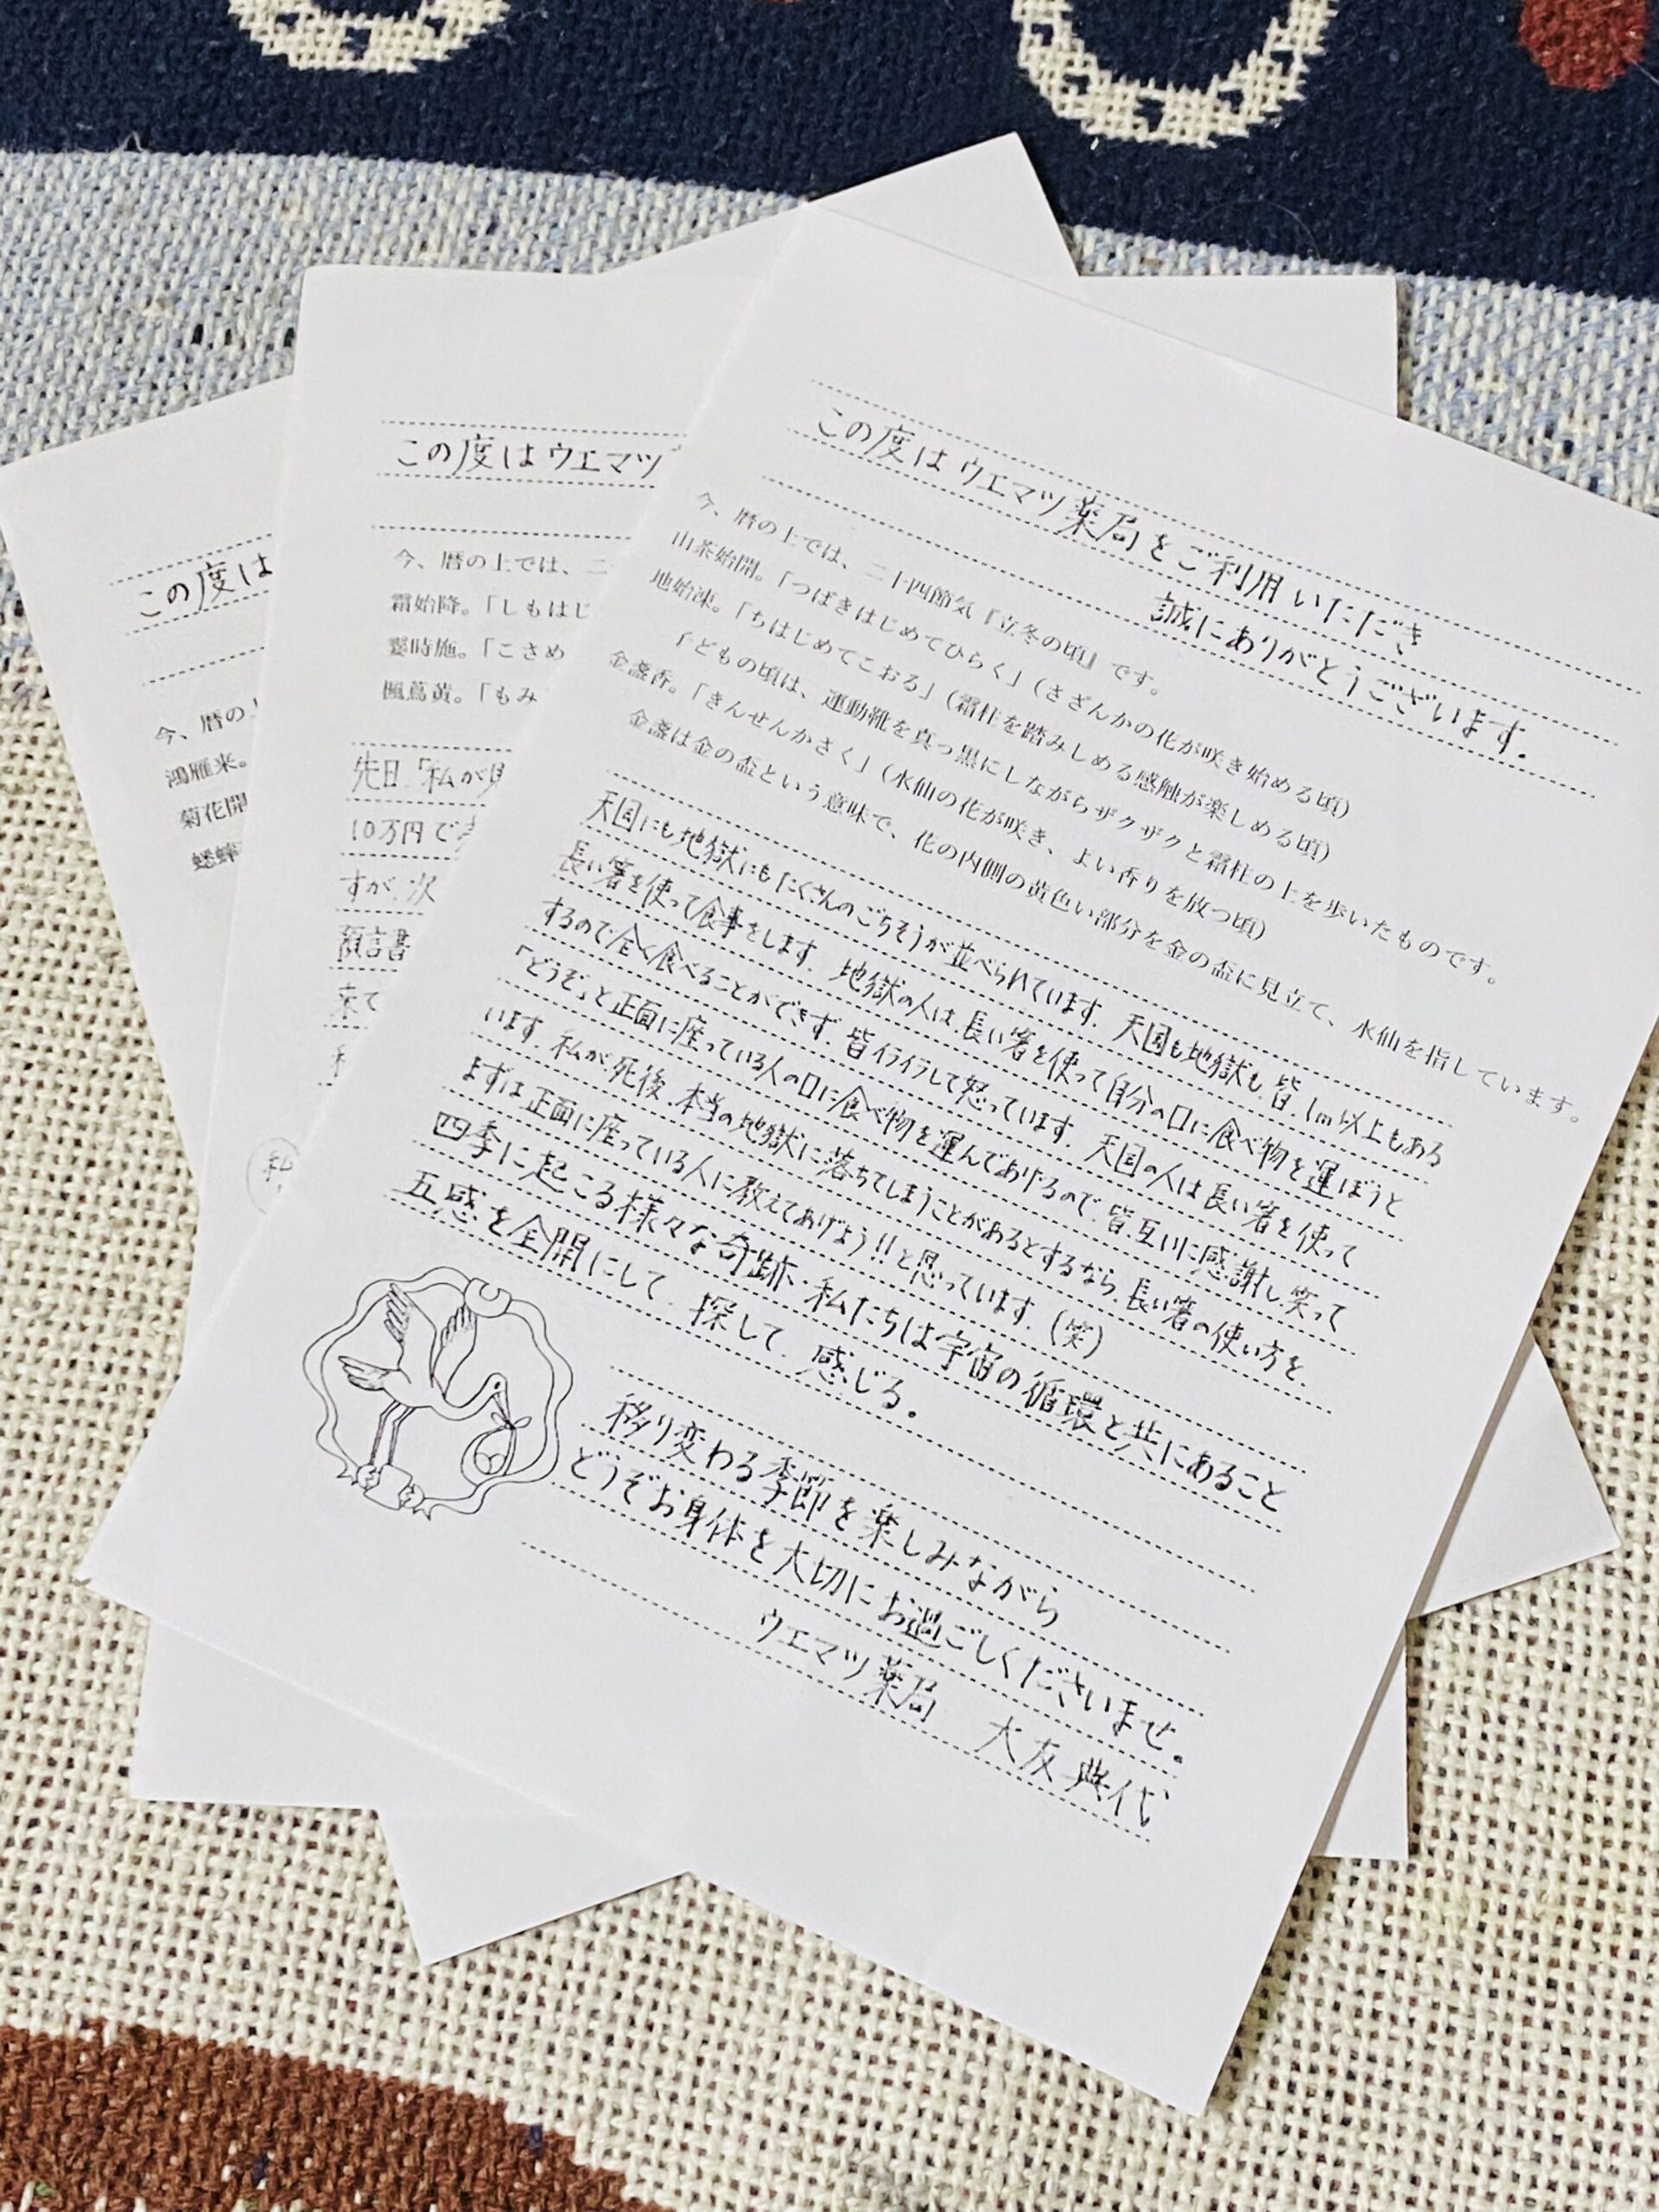 この度は
今、暦の
鴻雁来。
菊花開
蟋蟀
この度はウエマツ
今、暦の上では、二
霜始降。「しもはじ
霎時施。「こさめ
楓蔦黄。「もみ
先日「私が見
10万円で
すが、次
預言書
来て
私
この度はウエマツ薬局をご利用いただき
誠にありがとうございます.
今、暦の上では、二十四節気『立冬の頃』です。
山茶始開。「つばきはじめてひらく」(さざんかの花が咲き始める頃)
地始凍。「ちはじめてこおる」(霜柱を踏みしめる感触が楽しめる頃)
「どもの頃は、運動靴を真っ黒にしながらザクザクと霜柱の上を歩いたものです。
金盞香。「きんせんかさく」(水仙の花が咲き、よい香りを放つ頃)
金盞は金の盃という意味で、花の内側の黄色い部分を金の盃に見立て、水仙を指しています。
天国にも地獄にもたくさんのごちそうが並べられています. 天国も地獄も皆、1m以上もある
長い箸を使って食事をします. 地獄の人は、長い箸を使って自分の口に食べ物を運ぼうと
するので全く食べることができず、皆イライラして怒っています. 天国の人は長い箸を使って
「どうぞ」と正面に座っている人の口に食べ物を運んであげるので、皆、互いに感謝し、笑って
います. 私が死後、本当の地獄に落ちてしまうことがあるとするなら、長い箸の使い方を、
まずは正面に座っている人に教えてあげよう!!と思っています. (笑)
四季に起こる様々な奇跡・私たちは宇宙の循環と共にあること
五感を全開にして、探して、感じる。
移り変わる季節を楽しみながら
どうぞお身体を大切にお過ごしくださいませ。
ウエマツ薬局 大友典代